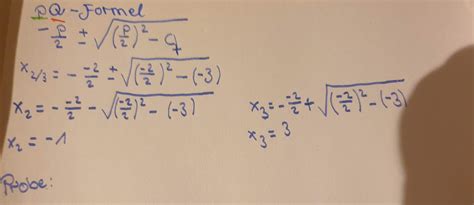 pQ-Formel
-p/2 ± √((p/2)² - q)
x₂/₃ = - -2/2 ± √((-2/2)² - (-3))
x₂ = - -2/2 - √((-2/2)² - (-3))
x₂ = -1
x₃ = - -2/2 + √((-2/2)² - (-3))
x₃ = 3
Probe: